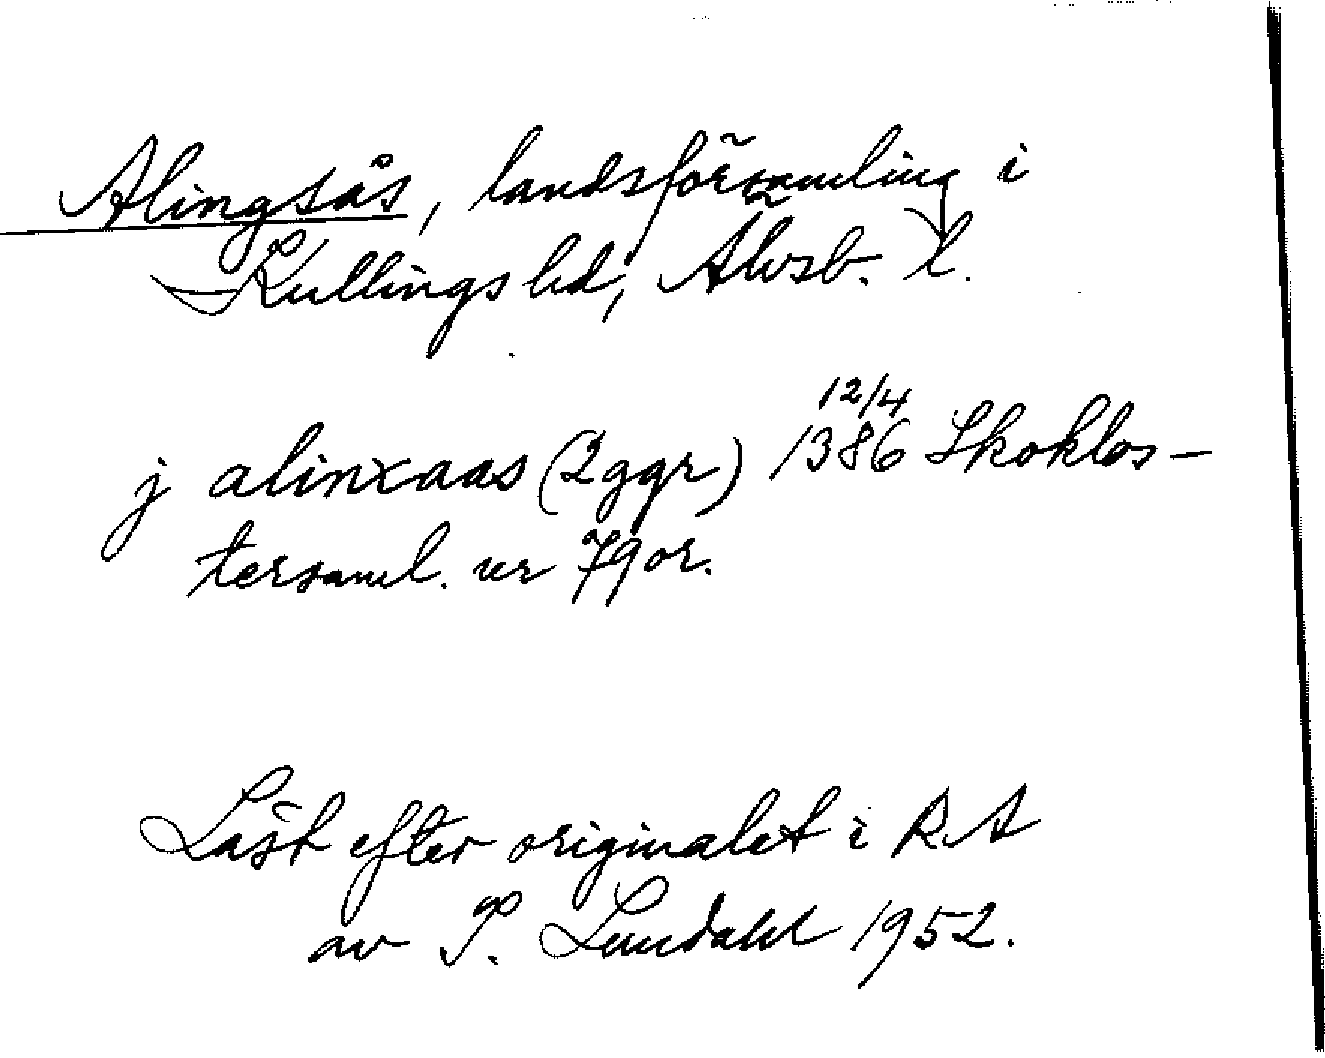 Alingsås, landsförsamling i
Kullings hd, Älvsb. l.
j alinxaas (2 ggr) 12/4 1386 Skoklos-
tersaml. nr 79 or.
Läst efter originalet i RA
av P. Lundahl 1952.